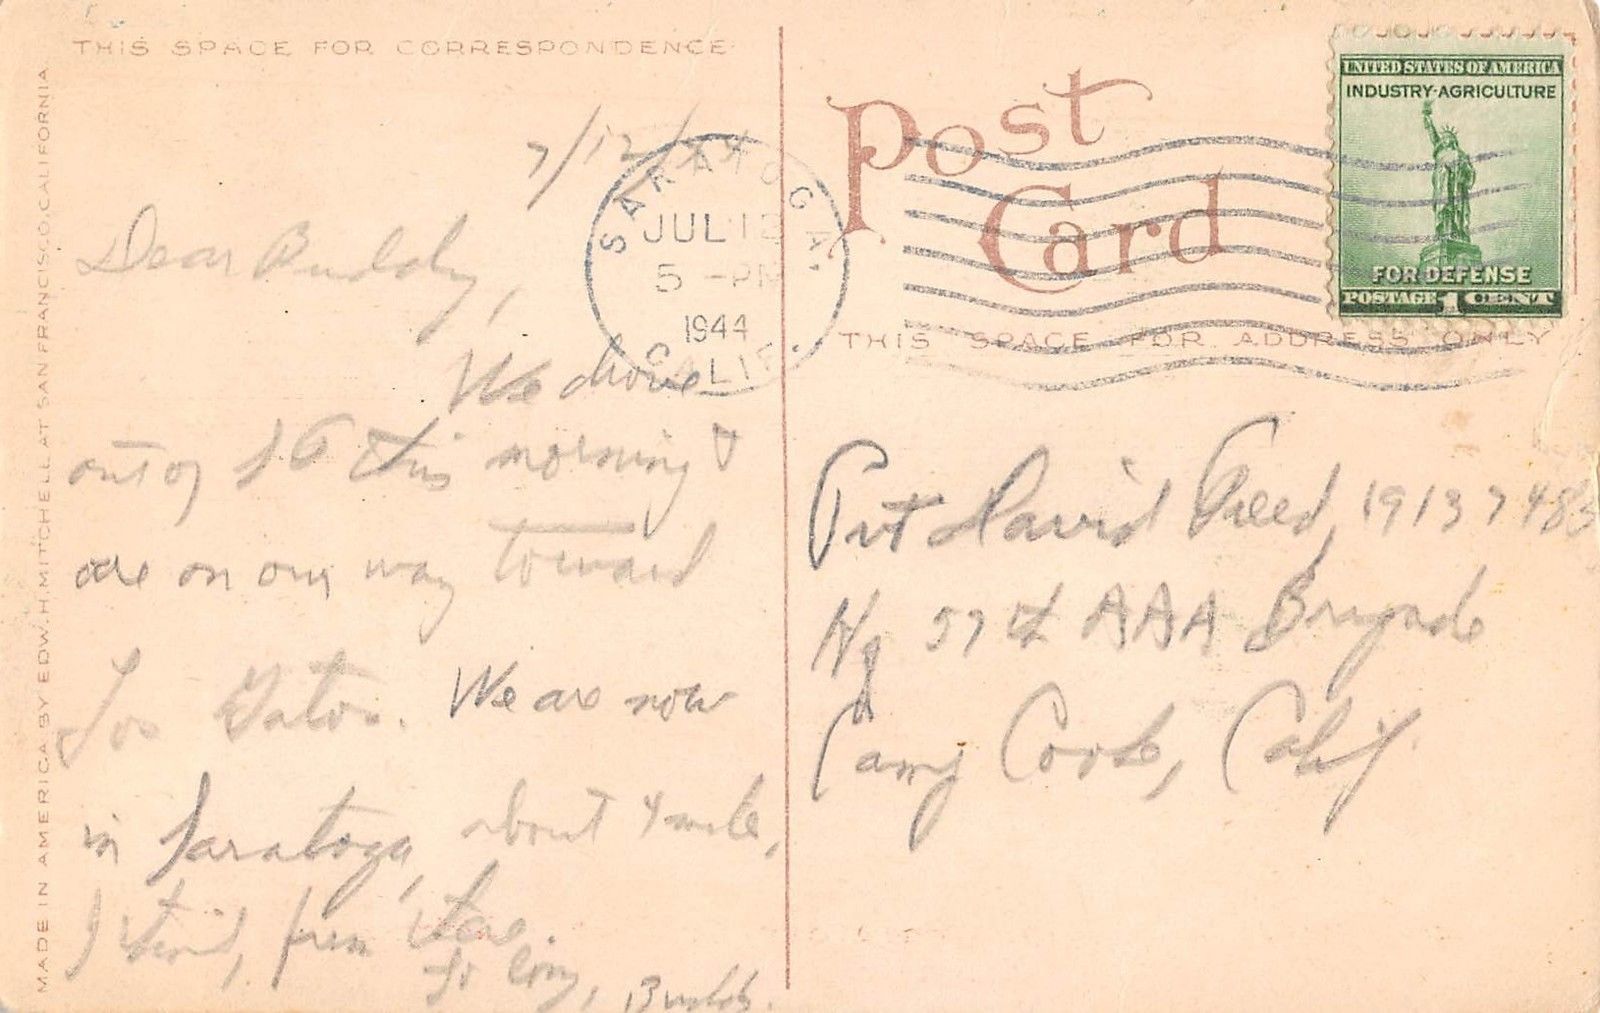 THIS SPACE FOR CORRESPONDENCE
7/12/44
Dear Buddy,
We drove
out of S F this morning &
are on our way toward
Los Gatos. We are now
in Saratoga, about 4 mile,
I think, from there.
So long, Buddy.
MADE IN AMERICA BY EDW. H. MITCHELL AT SAN FRANCISCO, CALIFORNIA
SARATOGA,
JUL 12
5 -PM
1944
CALIF.
Post
Card
UNITED STATES OF AMERICA
INDUSTRY·AGRICULTURE
FOR DEFENSE
POSTAGE 1 CENT
THIS SPACE FOR ADDRESS ONLY
Pvt David Freed, 19137483
Hq 57th AAA Brigade
Camp Cooke, Calif.